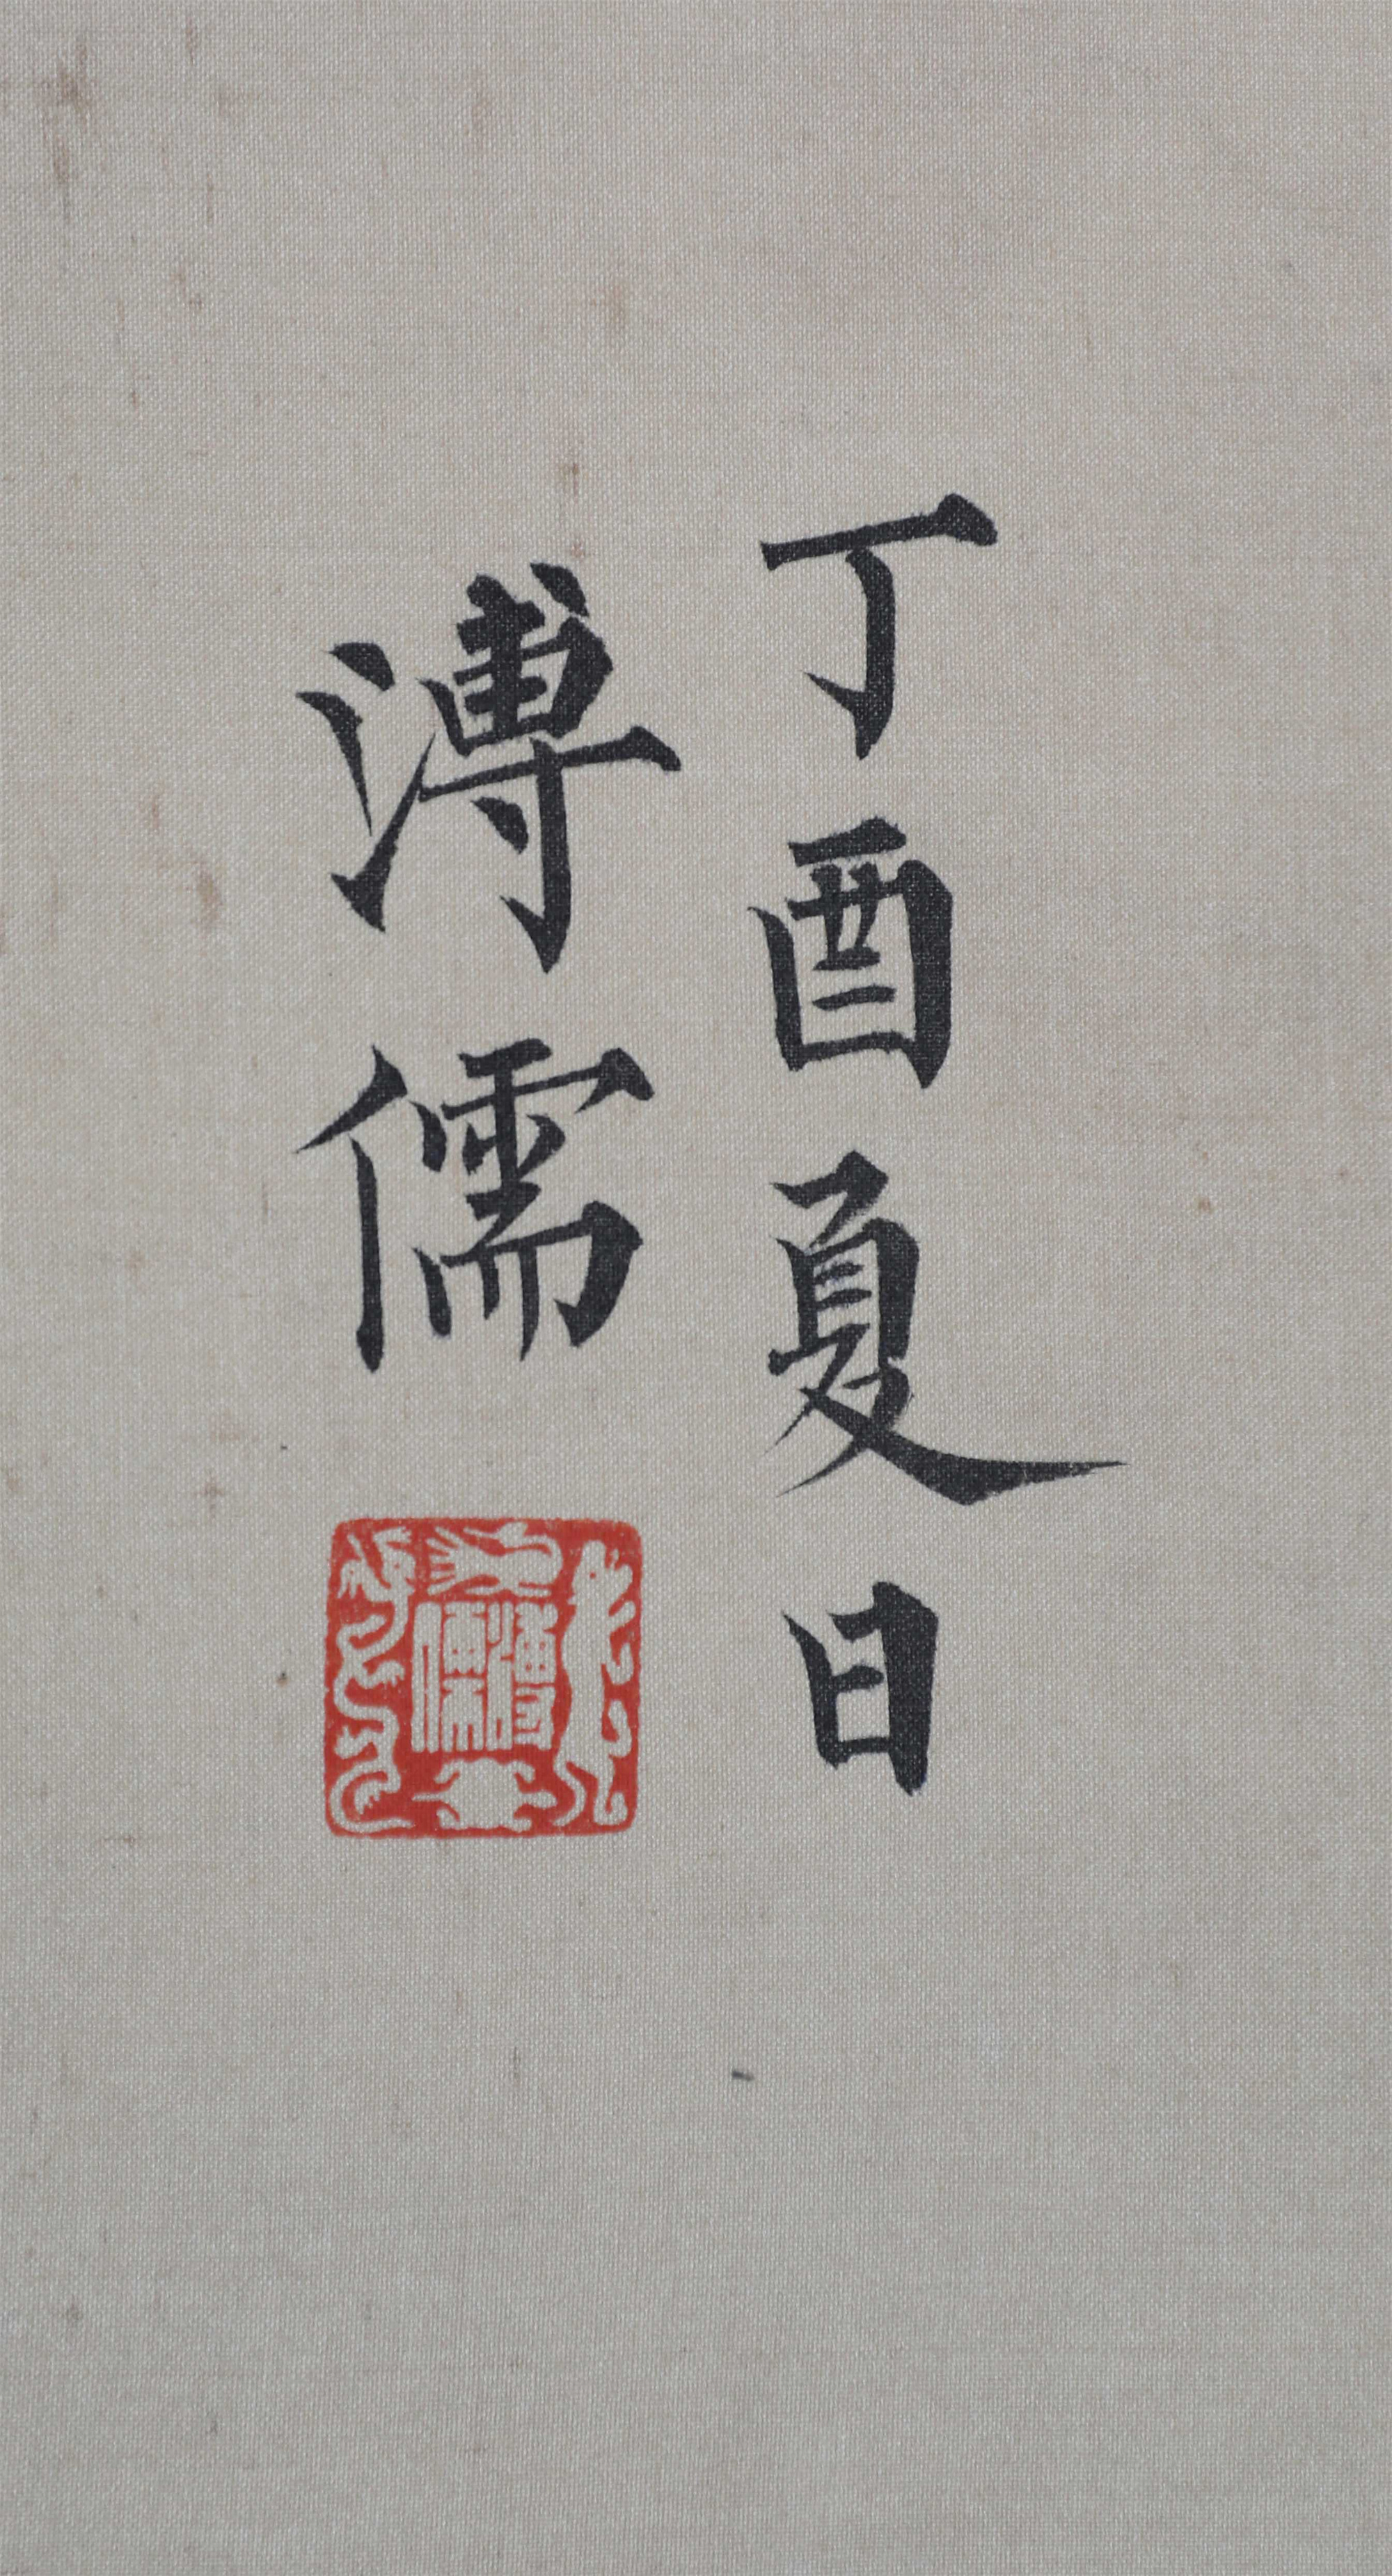 丁酉夏日
溥儒
溥儒